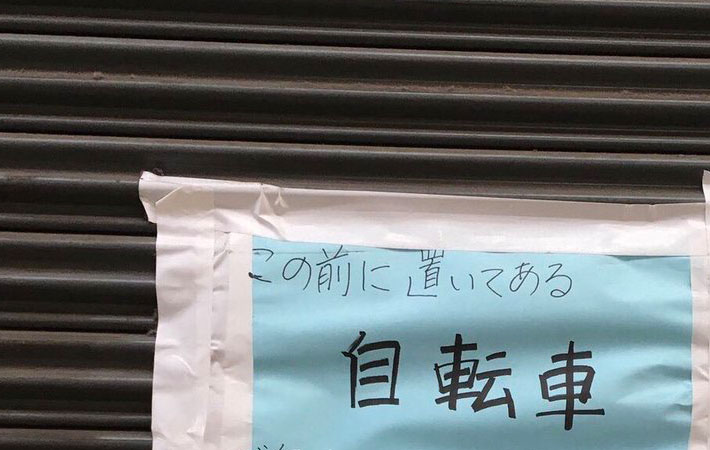 この前に置いてある
自転車